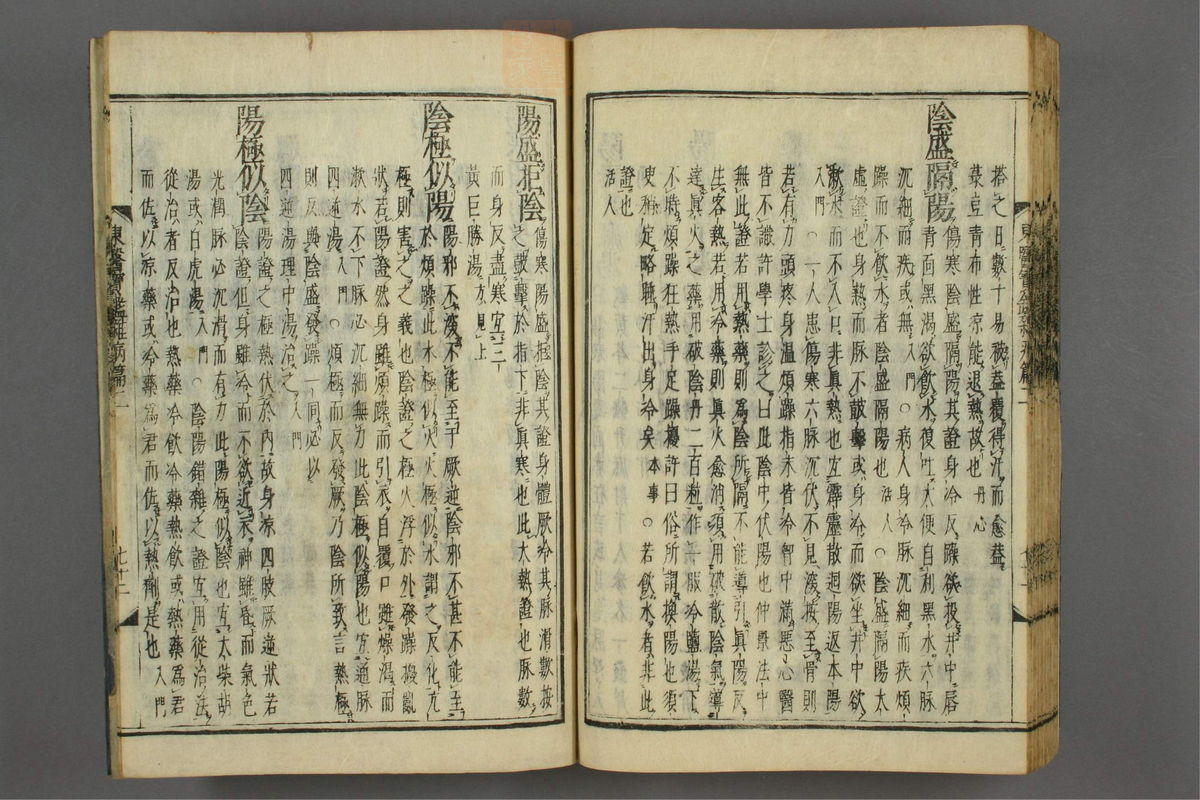 搭之日數十易被蓋覆得汗而愈蓋
菉豆青布性凉能退熱故也丹心
陰盛隔陽 傷寒陰盛隔陽其證身冷反躁欲投井中唇
青面黑渴欲飮水復吐大便自利黑水六脉
沉細而疾或無入門○病人身冷脉沉細而疾煩
躁而不飮水者陰盛隔陽也活人○陰盛隔陽大
虛證也身熱而脉不鼓擊或身冷而欲坐井中欲
漱水而不入口非眞熱也宜霹靂散𢌞陽返本湯
入門○一人患傷寒六脉沉伏不見深按至骨則
若有力頭疼身温煩躁指末皆冷胷中滿惡心醫
皆不識許學士診之曰此陰中伏陽也仲景法中
無此證若用熱藥則爲陰所隔不能導引眞陽反
生客熱若用冷藥則眞火愈消須用破散陰氣導
達眞火之藥用破陰丹二百粒作一服冷鹽湯下
不時煩躁狂熱手足躁擾許曰俗所謂換陽也須
臾稍定略睡汗出身冷矣本事○若飮水者非此
證也活人
陽盛拒陰 傷寒陽盛拒陰其證身體厥冷其脉滑數按
之鼓擊於指下非眞寒也此大熱證也脉數
而身反盡寒宜三
黃巨勝湯方見上
陰極似陽 陽邪不深不能至于厥逆陰邪不甚不能至
於煩躁此水極似火火極似水謂之反化亢
極則害之之義也陰證之極火浮於外發躁擾亂
狀若陽證然身雖煩躁而引衣自覆口雖燥渴而
漱水不下脉必沉細無力此陰極似陽也宜通脉
四逆湯入門○煩極而反發厥乃陰所致言熱極
則反與陰盛發躁一同必以
四逆湯理中湯治之入門
陽極似陰 陽證之極熱伏於内故身凉四肢厥逆狀若
陰證但身雖冷而不欲近衣神雖昏而氣色
光潤脉必沉滑而有力此陽極似陰也宜大柴胡
湯或白虎湯入門○陰陽錯雜之證宜用從治法
從治者反治也熱藥冷飮冷藥熱飮或熱藥爲君
而佐以凉藥或冷藥爲君而佐以熱劑是也入門
東醫寶鑑雜病篇二 七十二